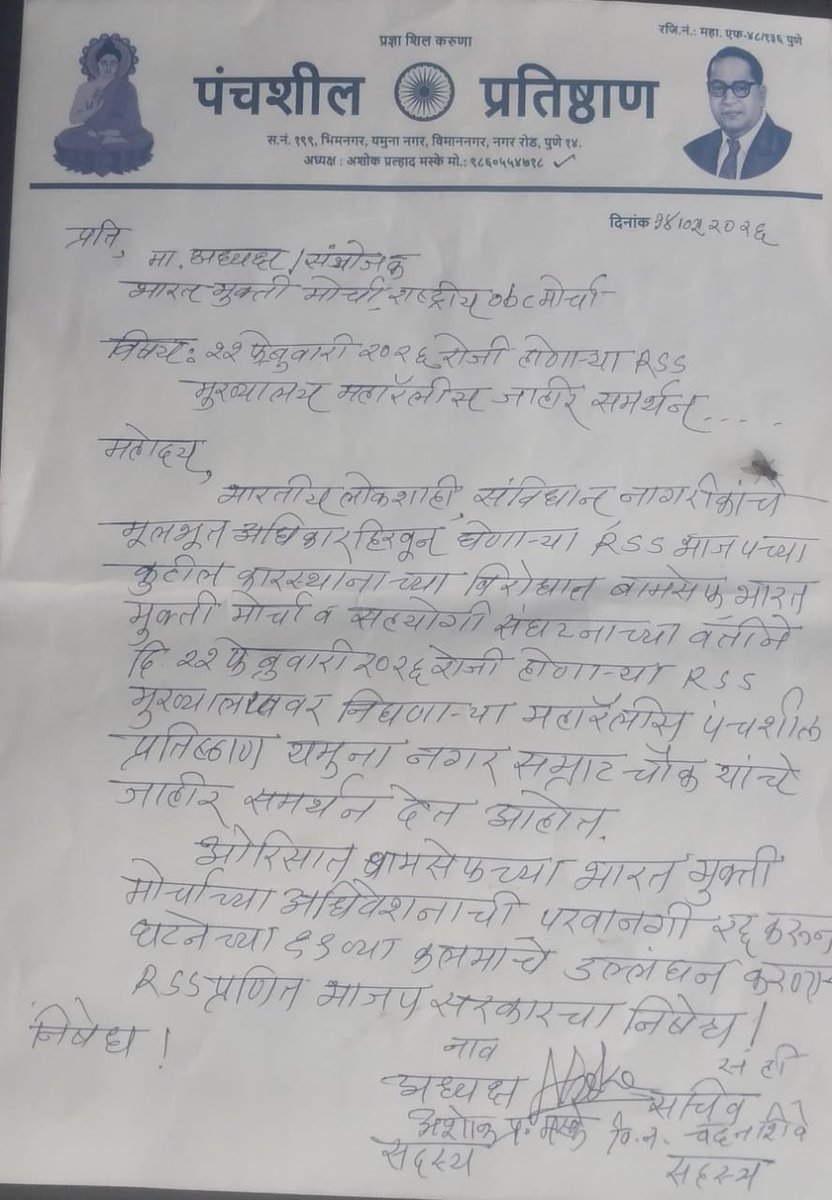 रजि.नं.: महा. एफ-४८/१३६ पुणे
प्रज्ञा शिल करुणा
पंचशील प्रतिष्ठाण
स.नं. १९९, भिमनगर, यमुना नगर, विमाननगर, नगर रोड, पुणे १४.
अध्यक्ष : अशोक प्रल्हाद मस्के मो.: ९८६०५५४७१८
दिनांक १४/०२/२०२६
प्रति,
मा. अध्यक्ष / संयोजक
भारत मुक्ती मोर्चा, राष्ट्रीय obc मोर्चा
विषय: २२ फेब्रुवारी २०२६ रोजी होणाऱ्या RSS
मुख्यालय महारॅलीस जाहीर समर्थन....
महोदय,
भारतीय लोकशाही, संविधान नागरीकांचे
मूलभूत अधिकार हिरवून घेणाऱ्या RSS भाजपच्या
कुटील कारस्थानाच्या विरोधात बामसेफ, भारत
मुक्ती मोर्चा व सहयोगी संघटनाच्या वतीने
दि. २२ फेब्रुवारी २०२६ रोजी होणाऱ्या RSS
मुख्यालयावर निघणाऱ्या महारॅलीस पंचशील
प्रतिष्ठाण यमुना नगर सम्राट चौक यांचे
जाहीर समर्थन देत आहोत.
ओरिसात बामसेफच्या भारत मुक्ती
मोर्चाच्या अधिवेशनाची परवानगी रद्द करून
घटनेच्या १९व्या कलमाचे उल्लंघन करणाऱ्या
RSS प्रणित भाजप सरकारचा निषेध!
निषेध!
नाव सही
अध्यक्ष सचिव
अशोक प्र. मस्के वि. न. चंदनशिवे
सदस्य सदस्य